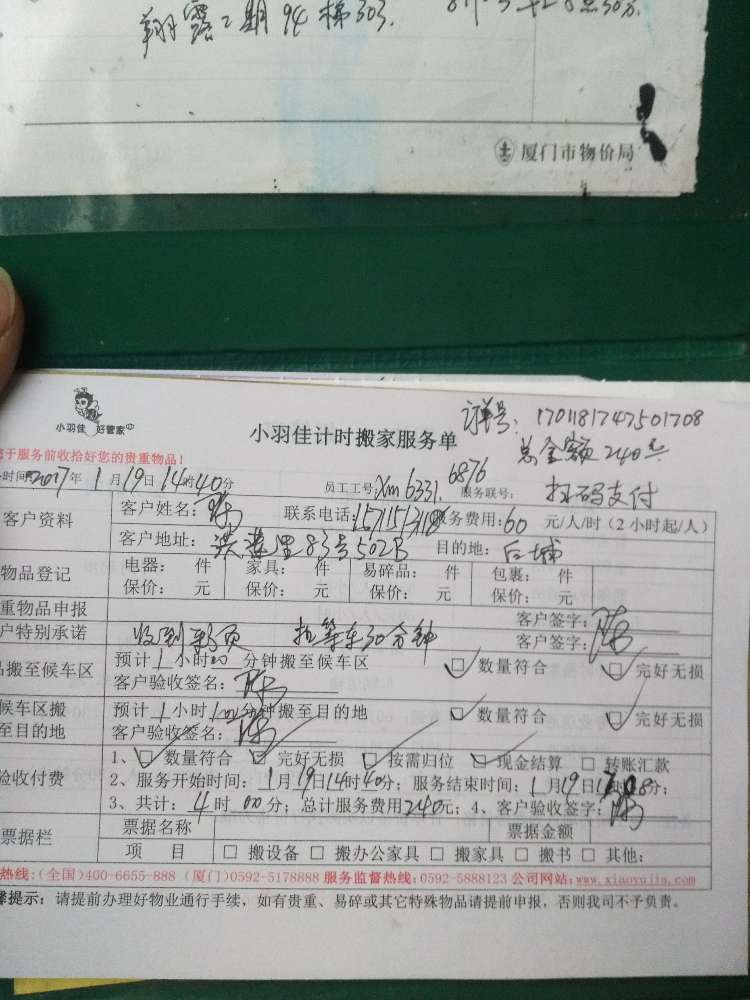 翔露2期94梯303.
厦门市物价局
小羽佳 好管家
小羽佳计时搬家服务单
订单号: 1701181747501708
总金额240元
于服务前收拾好您的贵重物品!
时间:2017年1月19日14时40分 员工工号:Xm6331. 6876 服务联号: 扫码支付
客户资料
客户姓名: 陈 联系电话: 服务费用:60 元/人/时(2小时起/人)
客户地址: 莲里83号502B 目的地: 后埔
物品登记
电器: 件 家具: 件 易碎品: 件 包裹: 件
保价: 元 保价: 元 保价: 元 保价: 元
重物品申报 客户签字: 陈
户特别承诺 收到彩页 拉等车30分钟 客户签字:
品搬至候车区
预计1小时00分钟搬至候车区 数量符合 完好无损
客户验收签名: 陈
候车区搬至目的地
预计1小时 分钟搬至目的地 数量符合 完好无损
客户验收签名: 陈
验收付费
1、数量符合 完好无损 按需归位 现金结算 转账汇款
2、服务开始时间: 1月19日14时40分; 服务结束时间: 1月19日 分;
3、共计: 4时00分; 总计服务费用240元; 4、客户验收签字: 陈
票据栏
票据名称 票据金额
项 目 □ 搬设备 □ 搬办公家具 □ 搬家具 □ 搬书 □ 其他:
热线:(全国)400-6655-888 (厦门)0592-5178888 服务监督热线:0592-5888123 公司网站:www.xiaoyujia.com
馨提示: 请提前办理好物业通行手续, 如有贵重、易碎或其它特殊物品请提前申报, 否则我司不予负责。